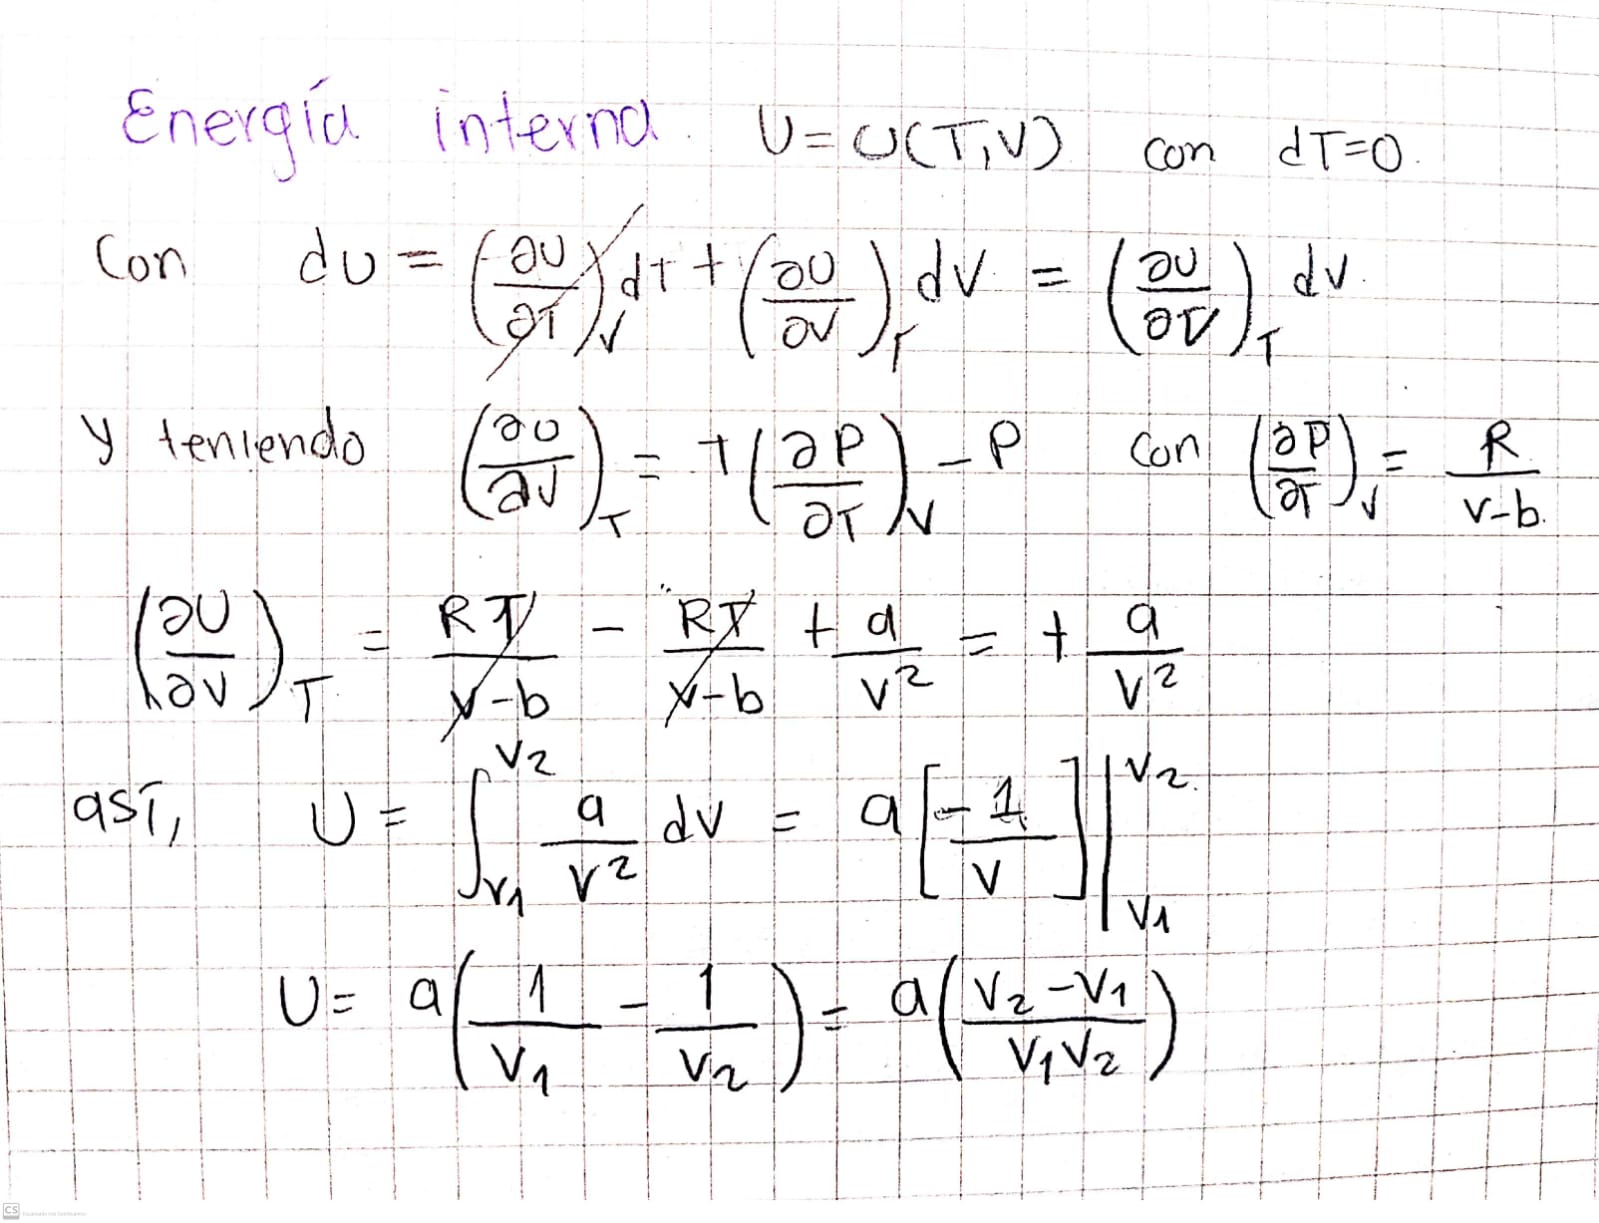 Energía interna. U=U(T,V) con dT=0.
Con dU = (∂U/∂T)_V dT + (∂U/∂V)_T dV = (∂U/∂V)_T dV.
y teniendo (∂U/∂V)_T = T(∂P/∂T)_V - P con (∂P/∂T)_V = R/(V-b).
(∂U/∂V)_T = RT/(V-b) - RT/(V-b) + a/V² = + a/V²
así, U = ∫_{V1}^{V2} a/V² dV = a[-1/V]|_{V1}^{V2}
U = a(1/V1 - 1/V2) = a((V2-V1)/(V1V2))
CS